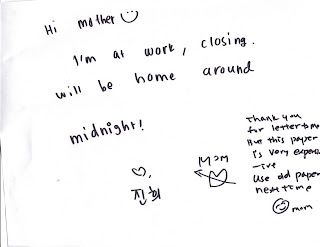 Hi mother
I'm at work, closing.
will be home around
midnight!
진희
MOM
Thank you
for letter to me
But this paper
is very expens
-ive
use old paper
next time
mom